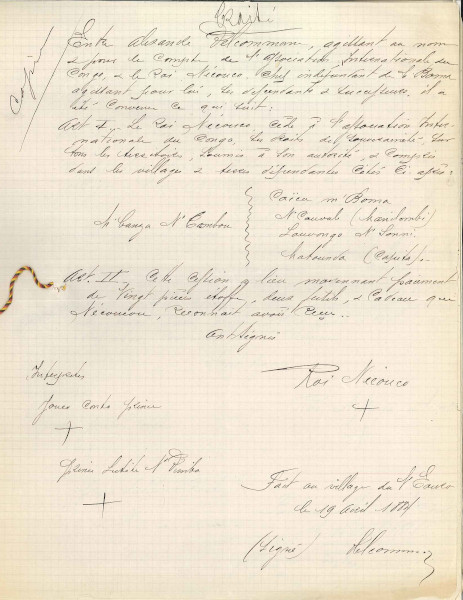 Copie
Traité
Entre Alexandre Delcommune, agissant au nom
& pour le Compte de l'Association Internationale du
Congo, & le Roi Nécouco, Chef indépendant de Boma
agissant pour lui, ses descendants & successeurs, il a
été convenu ce qui suit:
Art I. Le Roi Nécouco, cède à l'association Inter-
nationale du Congo, ses droits de Souveraineté, sur
tous les territoires, soumis à son autorité, & compris
dans les villages & terres dépendantes cités ci après:
M'Banza N'Cambou
Caïca m'Boma
N'Cauvali (Manilombi)
Louvongo N'Sonni
Matounda (Capita).
Art. II. Cette cession a lieu moyennant paiement
de vingt pièces étoffe, deux fusils, & cadeau que
Nécoucou, reconnait avoir reçu..
Ont signé
Interprètes
Roi Nécouco
+
+
+
Fait au village du
le 19 avril 1884
(Signé) Delcommune